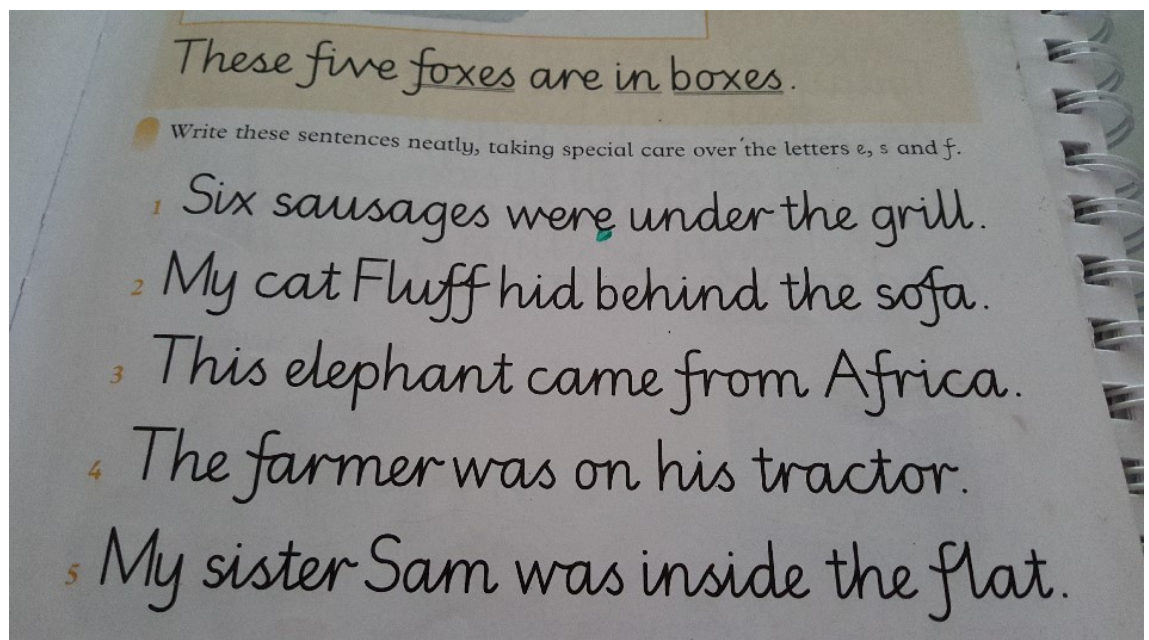 These five foxes are in boxes.
Write these sentences neatly, taking special care over the letters e, s and f.
1 Six sausages were under the grill.
2 My cat Fluff hid behind the sofa.
3 This elephant came from Africa.
4 The farmer was on his tractor.
5 My sister Sam was inside the flat.